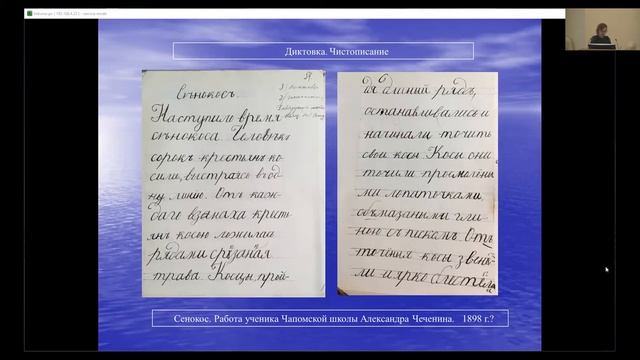 Диктовка. Чистописание
Сѣнокосъ.
Наступило время
сѣнокоса. Человѣкъ
сорокъ крестьянъ ко-
сили, выстраясь въ од-
ну линию. Отъ каж-
даго взмаха кресть-
янъ косою ложилась
рядами срѣзаная
трава. Косцы, прой-
дя длинний рядъ,
останавливались и
начинали точить
свои косы. Косы они
точили просмолены
ми лопаточками,
обмазанными гли-
ною съ пескамъ. Отъ
точения косы звень-
ли и ярко блистели
Сенокос. Работа ученика Чапомской школы Александра Чеченина. 1898 г.?